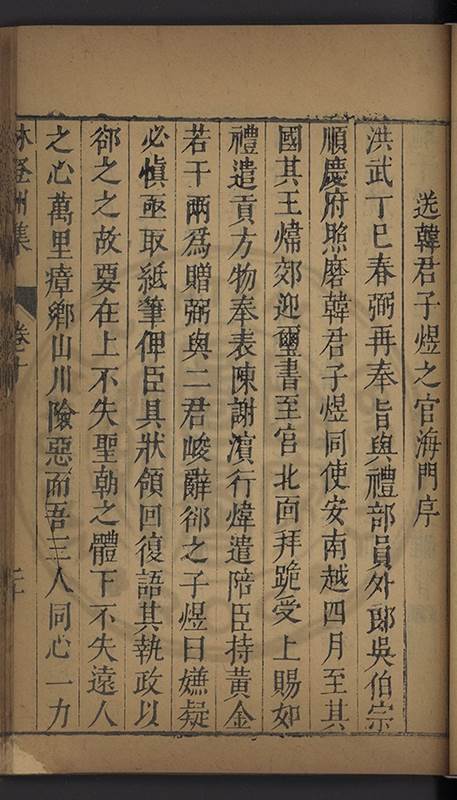 送韓君子煜之官海門序
洪武丁巳春弼再奉旨與禮部員外郎吳伯宗
順慶府照磨韓君子煜同使安南越四月至其
國其王煒郊迎璽書至官北面拜跪受上賜如
禮遣貢方物奉表陳謝濱行煒遣陪臣持黃金
若干兩爲贈弼與二君峻辭郤之子煜曰嫌疑
必慎亟取紙筆俾臣具狀領回復語其執政以
郤之之故要在上不失聖朝之體下不失遠人
之心萬里瘴鄉山川險惡而吾三人同心一力
林登州集 卷十